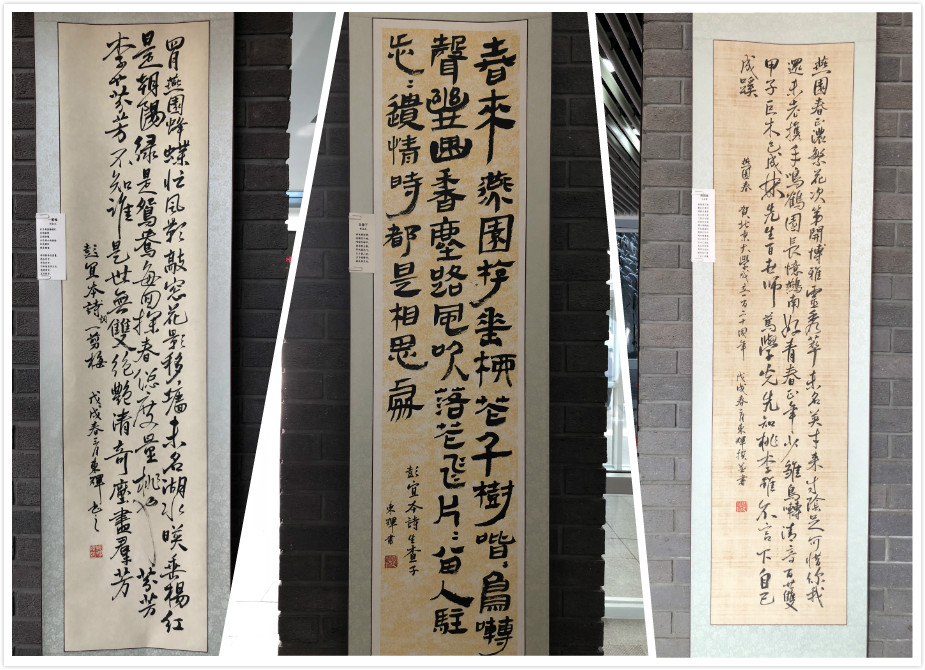 燕園蜂蝶忙風影敲窓花影移墻未名湖水映垂楊紅
是朝陽綠是鴛鴦每回探春總度量桃也芬芳
李也芬芳不知誰是世無雙絕艷清奇壓盡羣芳
彭宜本詩詞一剪梅 戊戌春三月東輝書之
春來燕園好垂柳花千樹喈〻鳥囀
聲幽曲香塵路風吹落花飛片〻留人駐
忘〻遺情時都是相思處
彭宜本詩生查子
東輝書
燕園春正濃繁花次第開博雅靈秀萃未名英才來光陰足可惜似我
還未老攜手鳴鶴園長憶燕南好青春正年少雛鳥囀清音百雙
甲子巨木已成林先生百世師篤學先先知桃李雖不言下自已
成蹊
燕園春 賀北京大學成立一百二十周年 戊戌春月東輝撰並書